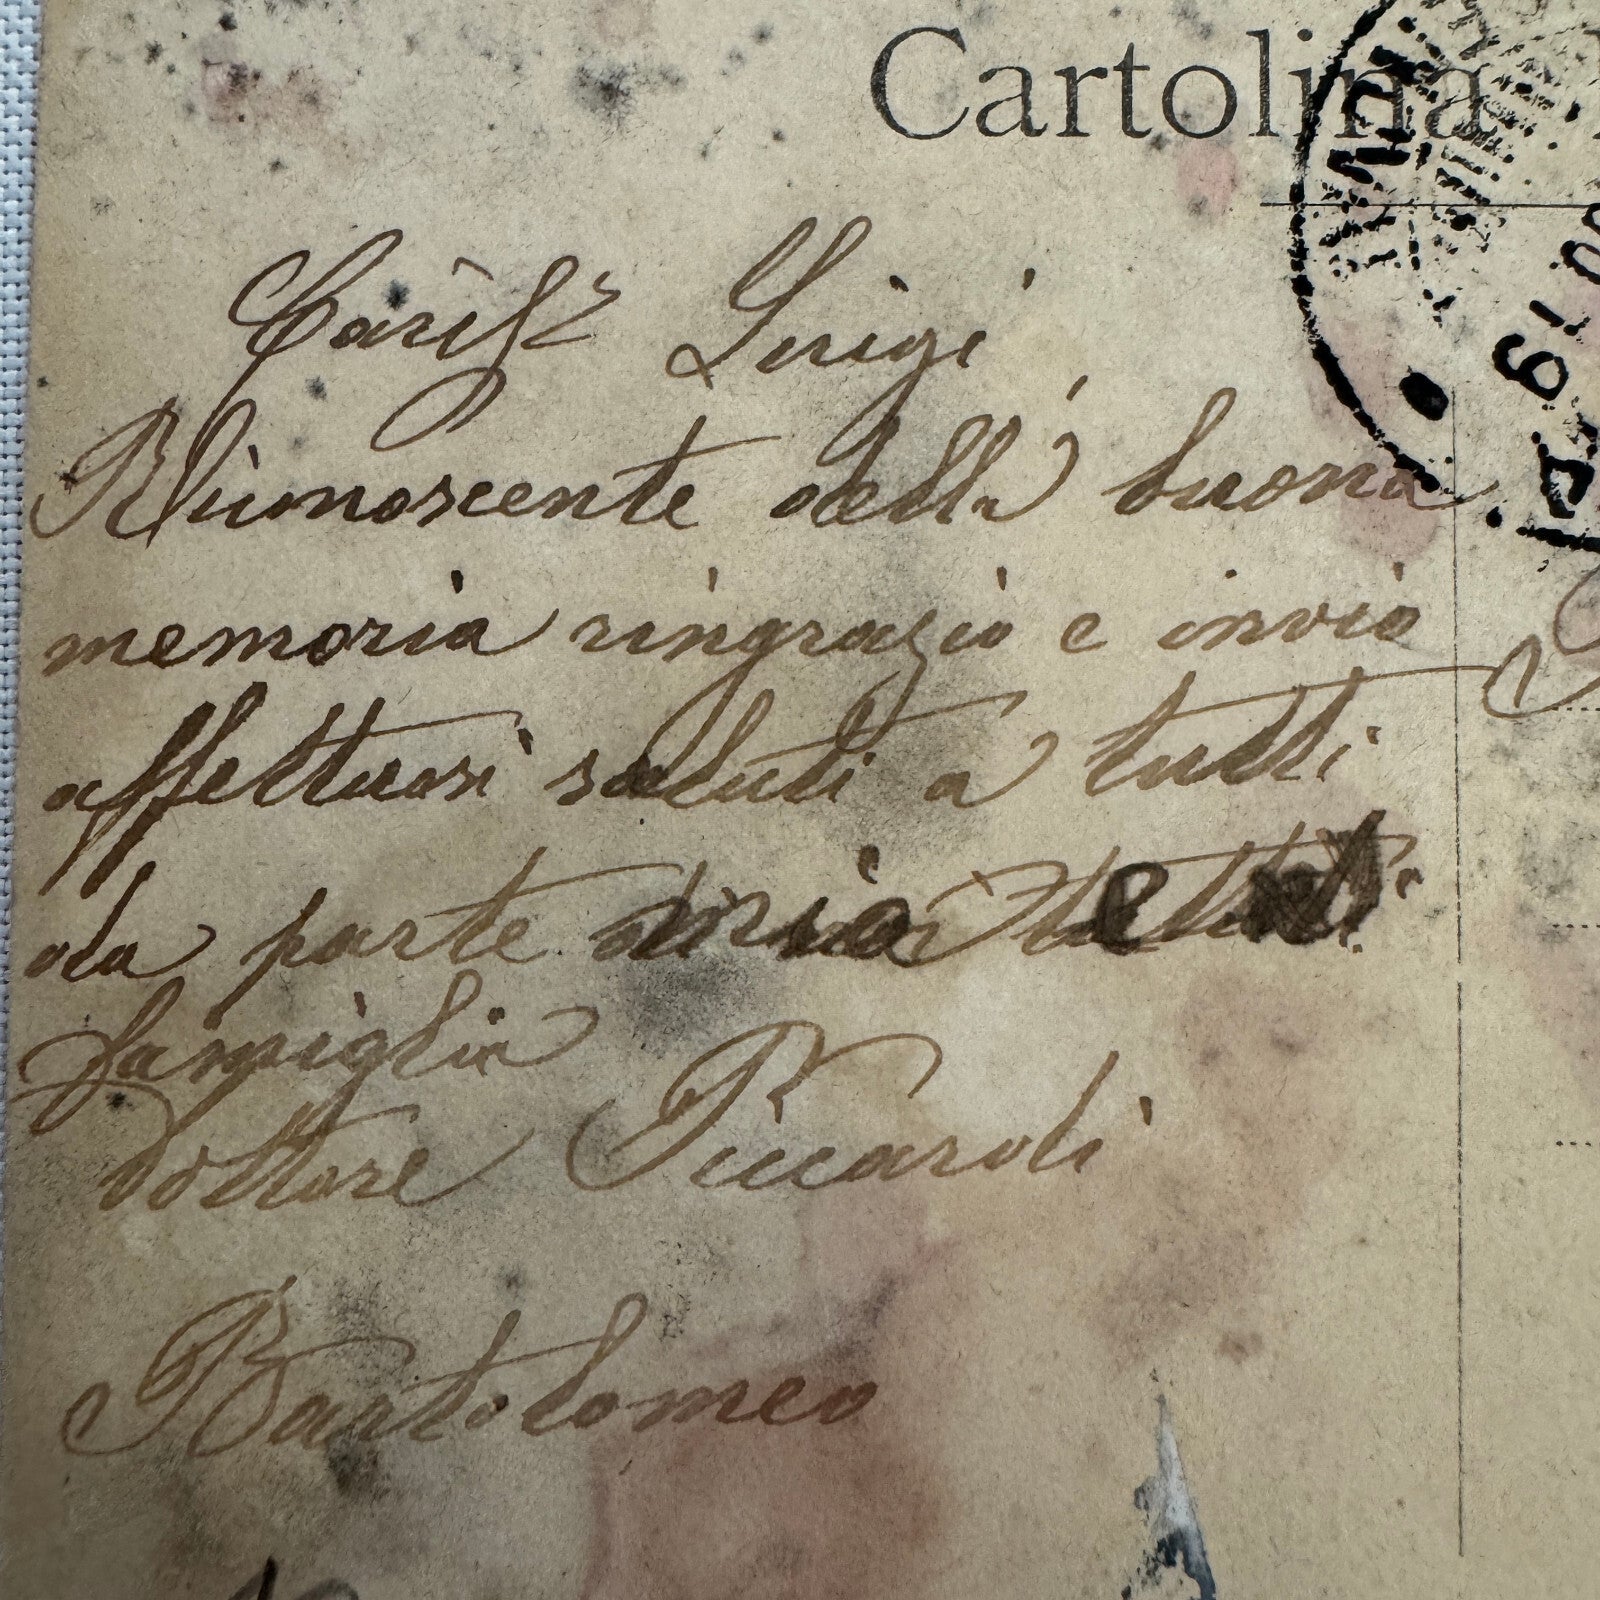 Cartolina
Cariss Luigi
Riconoscente della buona
memoria ringrazio e invio
affettuosi saluti a tutti
da parte mia e
famiglia
Dottore Piccaroli
Bartolomeo